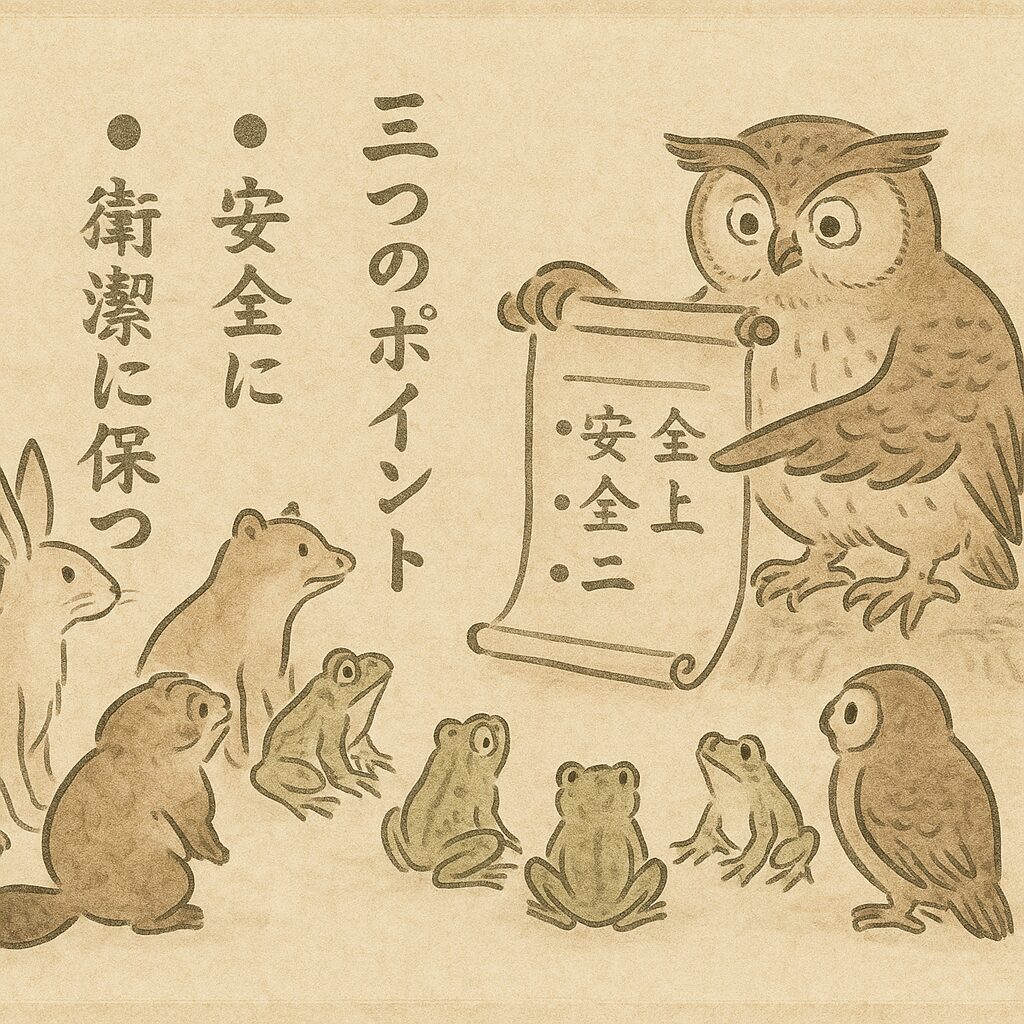 全上
・安・全・二
三つのポイント
●安全に
●衛潔に保つ